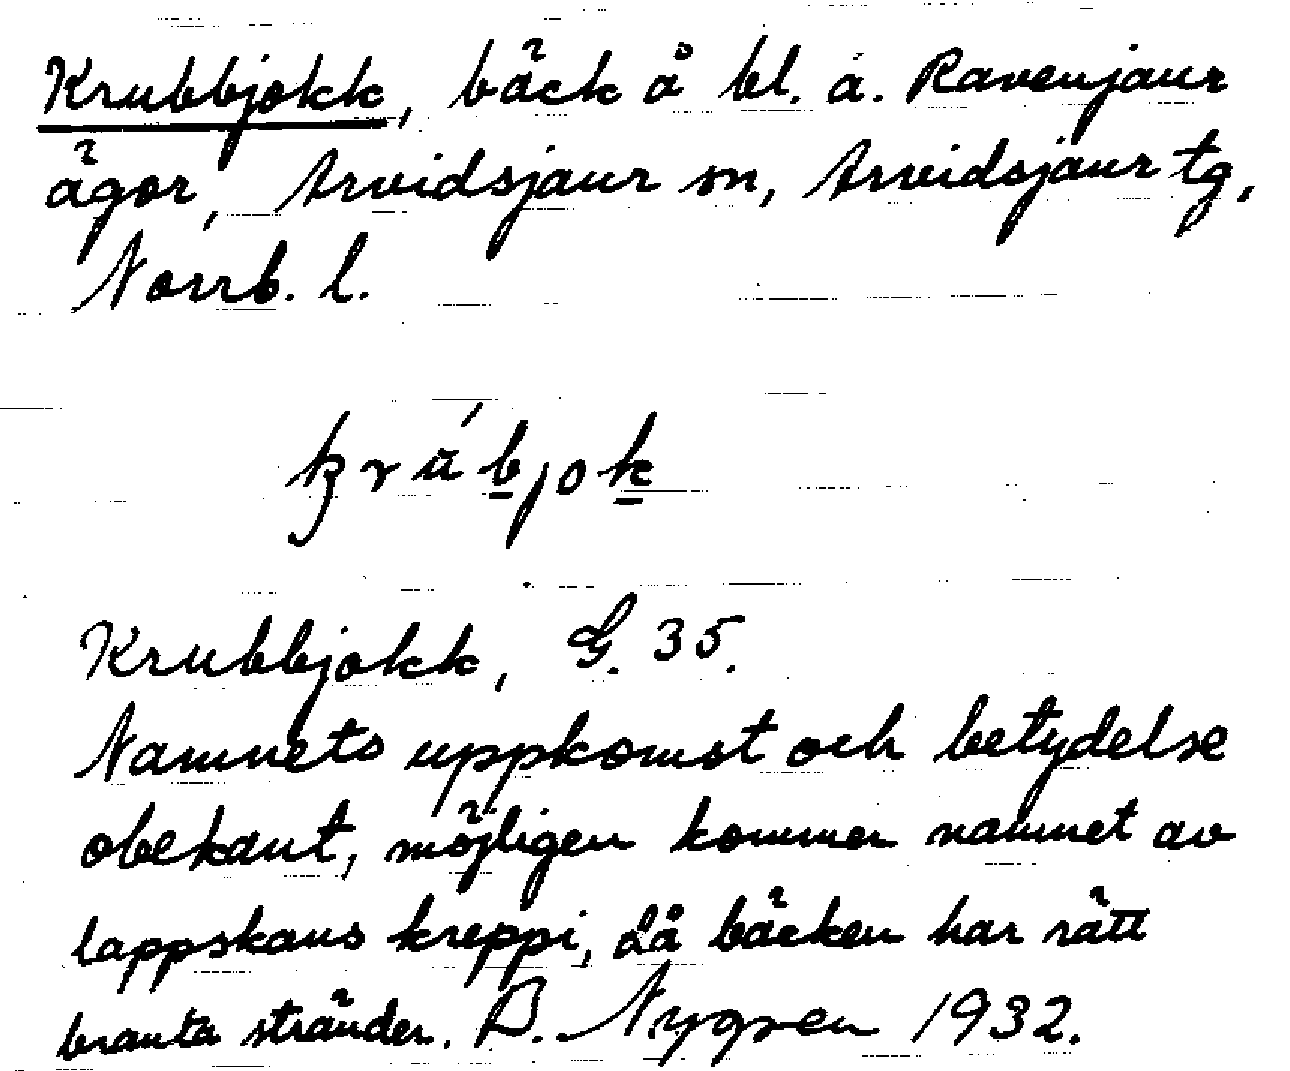 Krubbjokk, bäck å bl. a. Ravenjaur
ägor, Arvidsjaur sn, Arvidsjaur tg,
Norrb. l.
Krubbjokk, G. 35.
Namnets uppkomst och betydelse
obekant, möjligen kommer namnet av
lappskans kreppi, då bäcken har rätt
branta stränder. B. Nygren 1932.